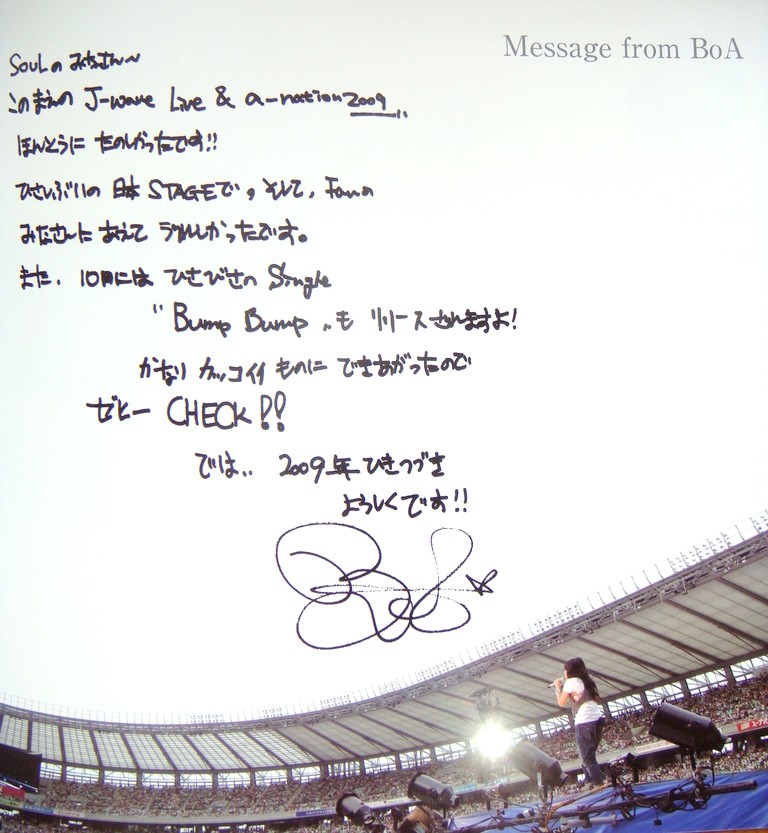 Message from BoA
SOULの みなさん〜
このまえの J-wave Live & a-nation2009..
ほんとうに たのしかったです!!
ひさしぶりの 日本 STAGEで, そして, Fanの
みなさんに あえて うれしかったです。
また, 10月には ひさびさの Single
"Bump Bump"も リリースされますよ!
かなり カッコイイ ものに できあがったので
ゼヒー CHECK!!
では.. 2009年 ひきつづき
よろしくです!!
BoA